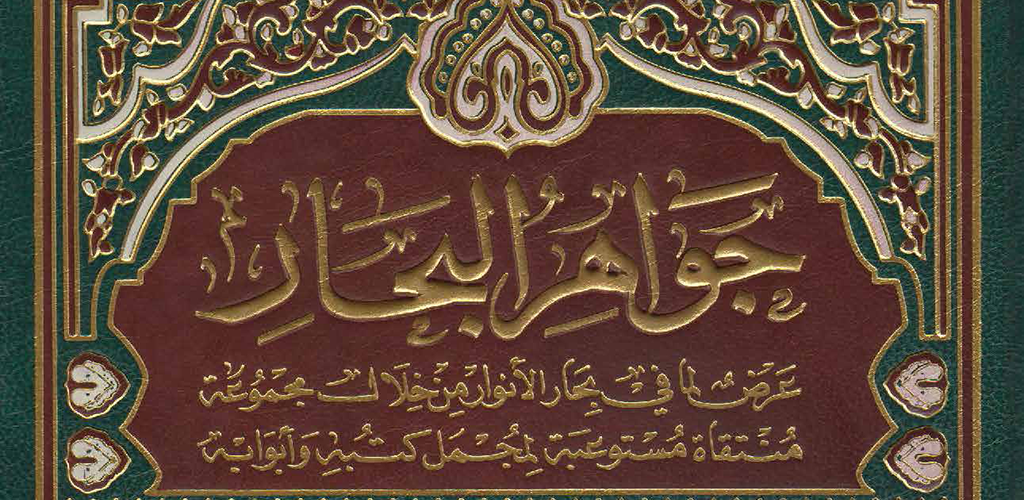 جَوَاهِرُ البِحَارِ
عَرْضٌ لِمَا فِي بِحَارِ الأَنْوَارِ مِنْ خِلَالِ مَجْمُوعَةٍ
مُنْتَقَاةٍ مُسْتَوْعِبَةٍ لِمُجْمَلِ كُتُبِهِ وَأَبْوَابِهِ